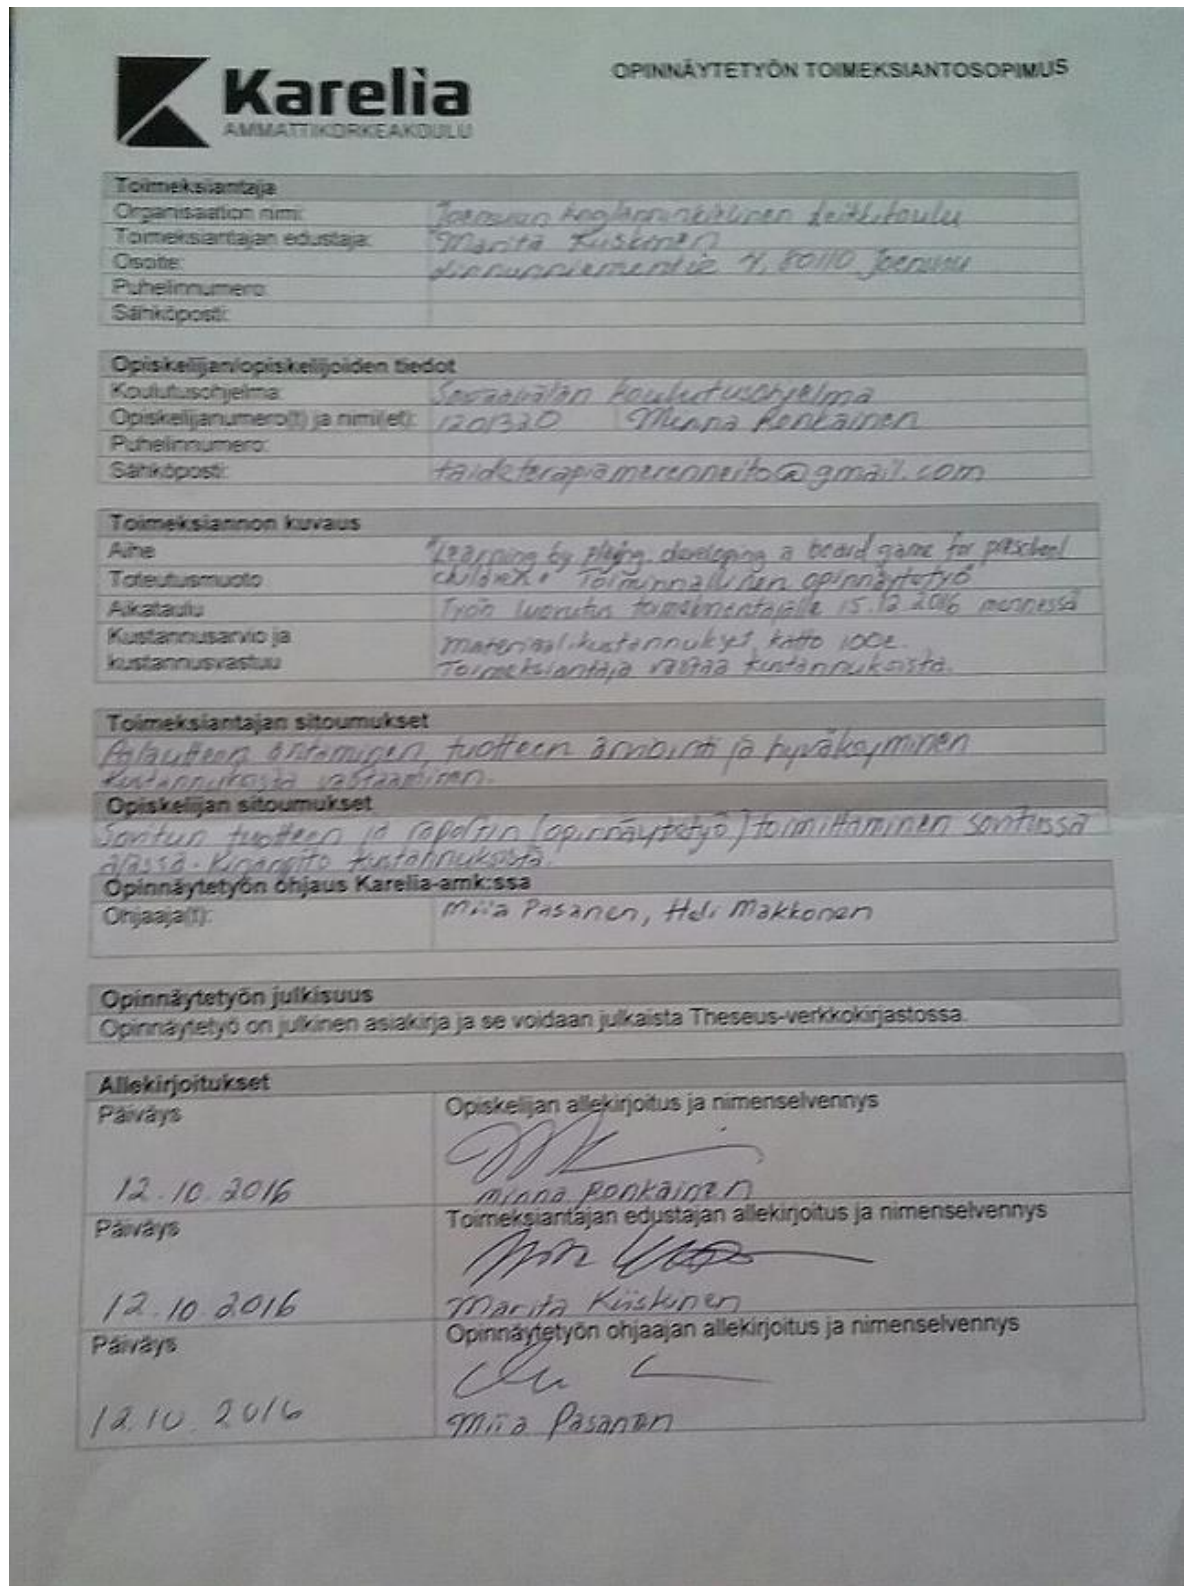 Karelia
AMMATTIKORKEAKOULU
OPINNÄYTETYÖN TOIMEKSIANTOSOPIMUS
Toimeksiantaja
Organisaation nimi: Joensuun englanninkielinen leikkikoulu
Toimeksiantajan edustaja: Marita Kiiskinen
Osoite: Linnunniementie 4, 80110 Joensuu
Puhelinnumero:
Sähköposti:
Opiskelijan/opiskelijoiden tiedot
Koulutusohjelma: Sosiaalialan koulutusohjelma
Opiskelijanumero(t) ja nimi(et): 1201320 Minna Ronkainen
Puhelinnumero:
Sähköposti: taideterapiamerenneito@gmail.com
Toimeksiannon kuvaus
Aihe "Learning by playing: developing a board game for preschool
Toteutusmuoto children." Toiminnallinen opinnäytetyö
Aikataulu Työn luovutus toimeksiantajalle 15.12.2016 mennessä
Kustannusarvio ja Materiaalikustannukset, katto 100€.
kustannusvastuu Toimeksiantaja vastaa kustannuksista.
Toimeksiantajan sitoumukset
Palautteen antaminen, tuotteen arviointi ja hyväksyminen
Kustannuksista vastaaminen.
Opiskelijan sitoumukset
Sovitun tuotteen ja raportin (opinnäytetyö) toimittaminen sovitussa
ajassa. Kirjanpito kustannuksista.
Opinnäytetyön ohjaus Karelia-amk:ssa
Ohjaaja(t): Miia Pasanen, Heli Makkonen
Opinnäytetyön julkisuus
Opinnäytetyö on julkinen asiakirja ja se voidaan julkaista Theseus-verkkokirjastossa.
Allekirjoitukset
Päiväys Opiskelijan allekirjoitus ja nimenselvennys
12.10.2016 Minna Ronkainen
Päiväys Toimeksiantajan edustajan allekirjoitus ja nimenselvennys
12.10.2016 Marita Kiiskinen
Päiväys Opinnäytetyön ohjaajan allekirjoitus ja nimenselvennys
12.10.2016 Miia Pasanen